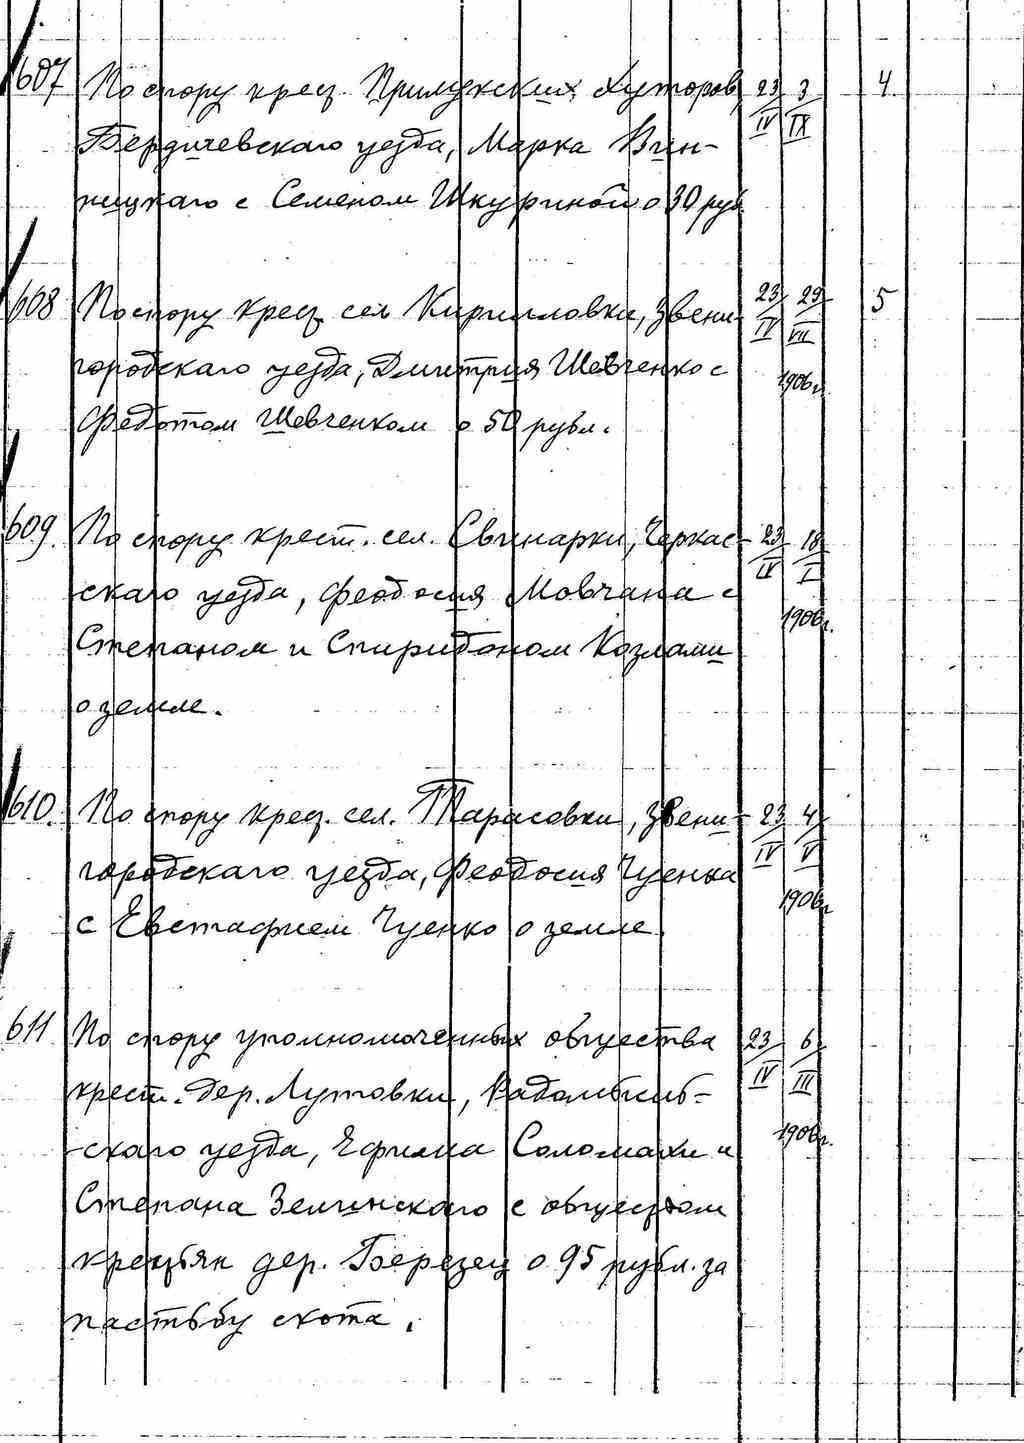 607 По спору крест. Прилукских Хуторов, 23/IV 3/IX 4
Бердичевскаго уезда, Марка Вин-
ницкаго с Семеном Шкуриной о 30 руб.
608 По спору крест. сел. Кирилловки, Звени- 23/IV 29/VII 5
городскаго уезда, Дмитрия Шевченко с 1906 г.
Федотом Шевченком о 50 рубл.
609. По спору крест. сел. Свинарки, Черкас- 23/IV 18/I
скаго уезда, Феодосия Мовчана с 1906 г.
Степаном и Спиридоном Козлами
о земле.
610. По спору крест. сел. Тарасовки, Звени- 23/IV 4/V
городскаго уезда, Феодосия Чуенка 1906 г.
с Евстафием Чуенко о земле.
611 По спору уполномоченных общества 23/IV 6/III
крест. дер. Лутовки, Радомысль-
скаго уезда, Ефима Соломахи и 1906 г.
Степана Зелинскаго с обществом
крестьян дер. Березец о 95 рубл. за
пастьбу скота.